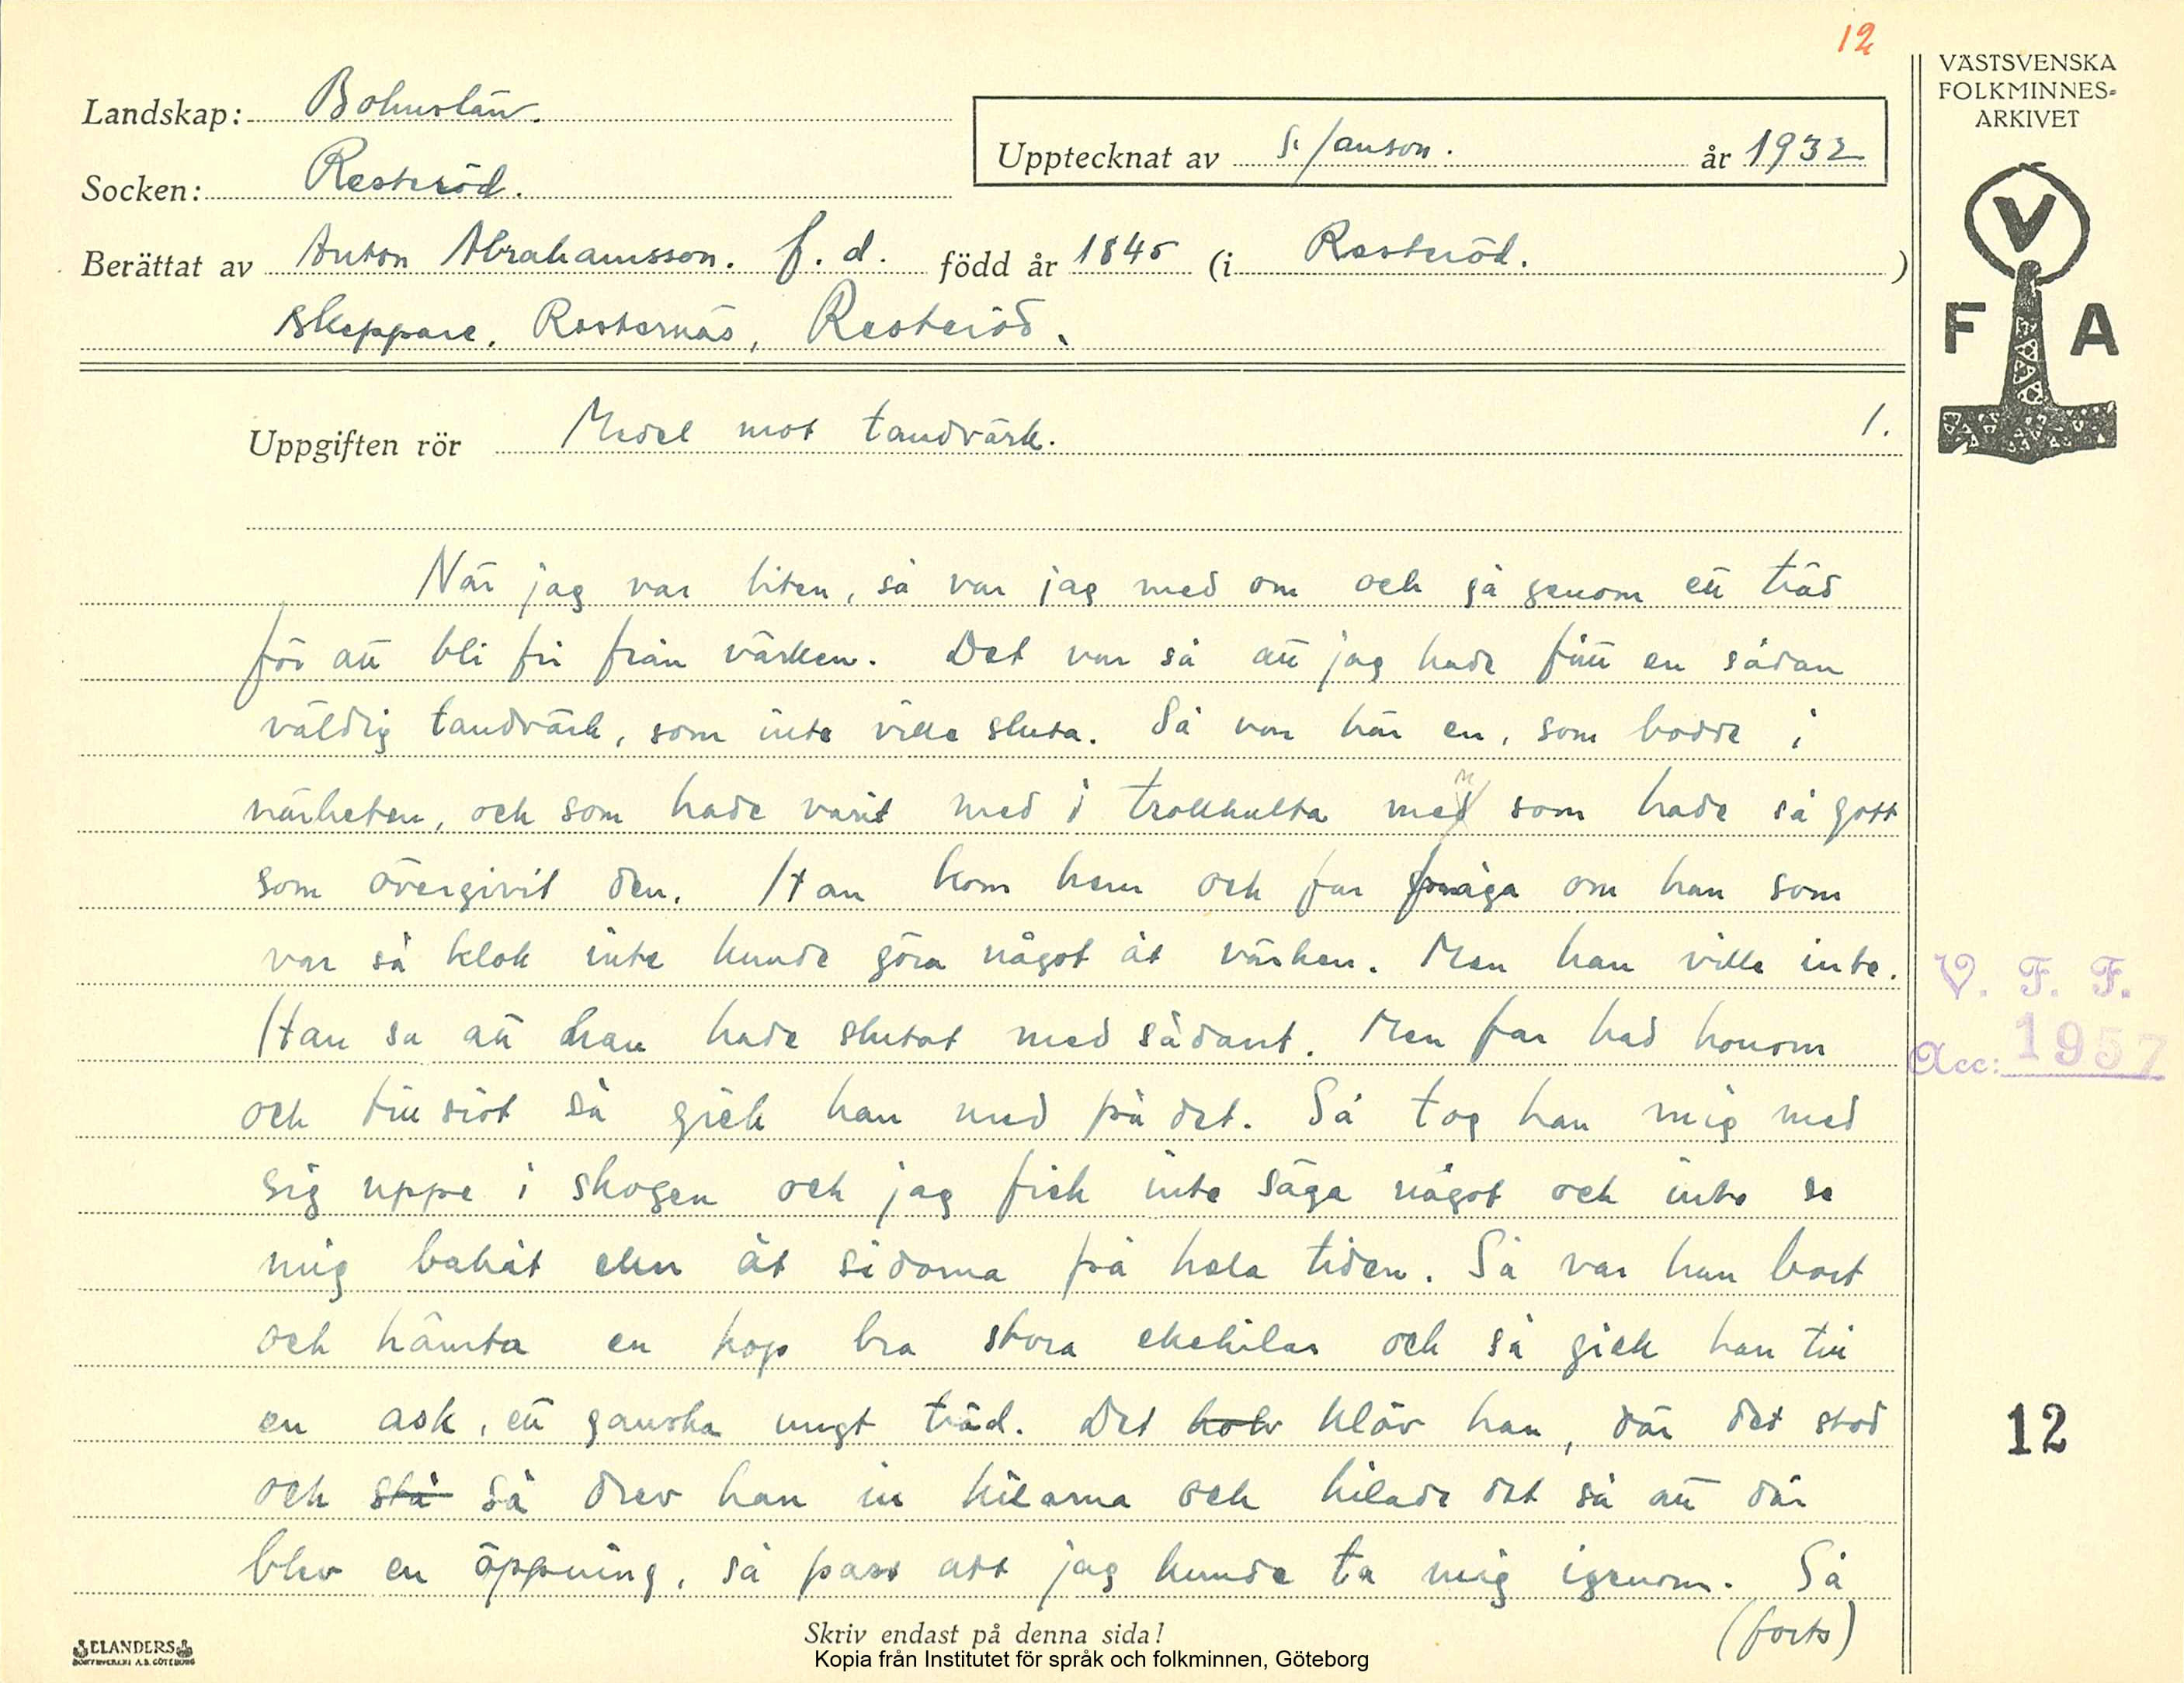 12
VÄSTSVENSKA
FOLKMINNES-
ARKIVET
Landskap: Bohuslän.
Upptecknat av S. Janson. år 1932
Socken: Resteröd.
Berättat av Anton Abrahamsson. f. d. född år 1845 (i Resteröd. )
skeppare. Resternäs, Resteröd.
V
F A
Uppgiften rör Medel mot tandvärk. 1.
När jag var liten, så var jag med om och gå genom ett träd
för att bli fri från värken. Det var så att jag hade fått en sådan
väldig tandvärk, som inte ville sluta. Så var här en, som bodde i
närheten, och som hade varit med i trollhulta men som hade så gott
som övergivit den. Han kom hem och far fråga om han som
var så klok inte kunde göra något åt värken. Men han ville inte.
Han sa att han hade slutat med sådant. Men far bad honom
och till sist så gick han med på det. Så tog han mig med
sig uppe i skogen och jag fick inte säga något och inte se
mig bakåt eller åt sidorna på hela tiden. Så var han bort
och hämta en hop bra stora ekekilar och så gick han till
en ask, ett ganska ungt träd. Det kolv klöv han, där det stod
och stå så drev han in kilarna och kilade det så att där
blev en öppning, så pass att jag kunde ta mig igenom. Så
(forts)
V. F. F.
Acc: 1957
12
Skriv endast på denna sida!
Kopia från Institutet för språk och folkminnen, Göteborg
ELANDERS
BOKTRYCKERI A.B. GÖTEBORG